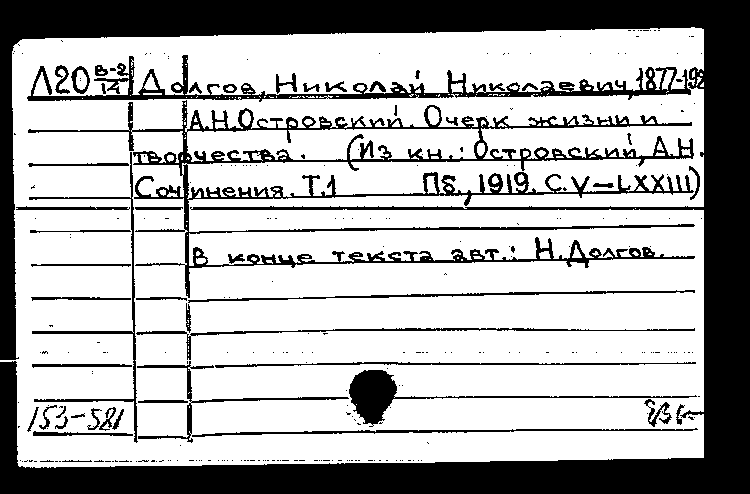 Л20 В-2/14 Долгов, Николай Николаевич, 1877-192
А.Н.Островский. Очерк жизни и
творчества. (Из кн.: Островский, А.Н.
Сочинения. Т.1 Пб., 1919. С. V–LXXIII)
В конце текста авт.: Н.Долгов.
153-581